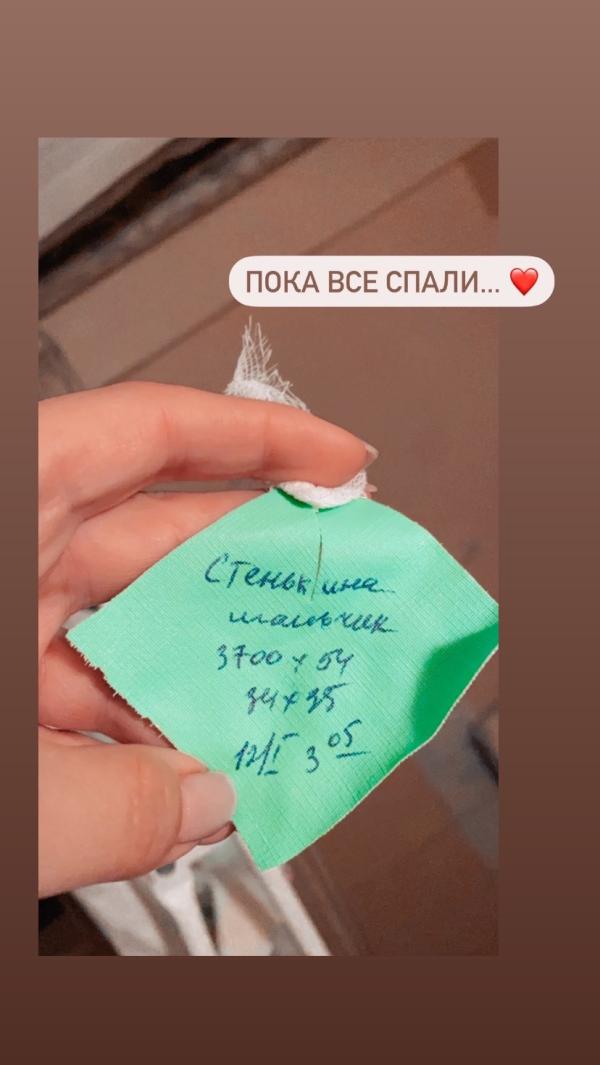 ПОКА ВСЕ СПАЛИ... ❤️
Стенькина
мальчик
3700 x 54
34 x 35
12/I 3 05